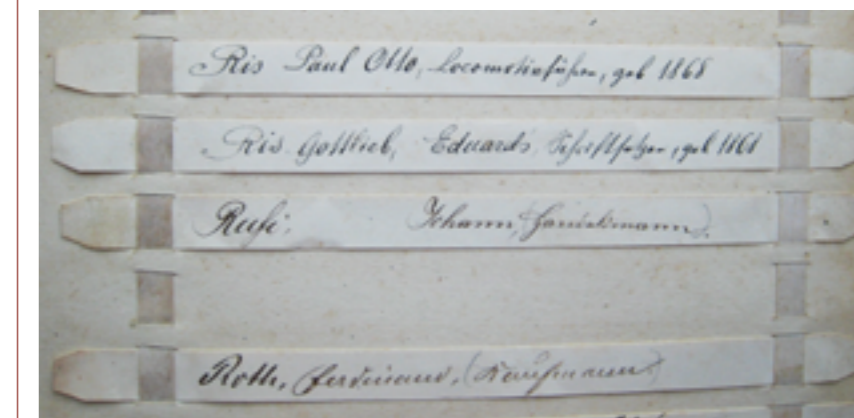 Ris Paul Otto, Locomotivführer, geb 1868
Ris Gottlieb, Eduards, Schriftsetzer, geb 1861
Rufi, Johann, Handelsmann.
Roth, Ferdinand, (Kaufmann)